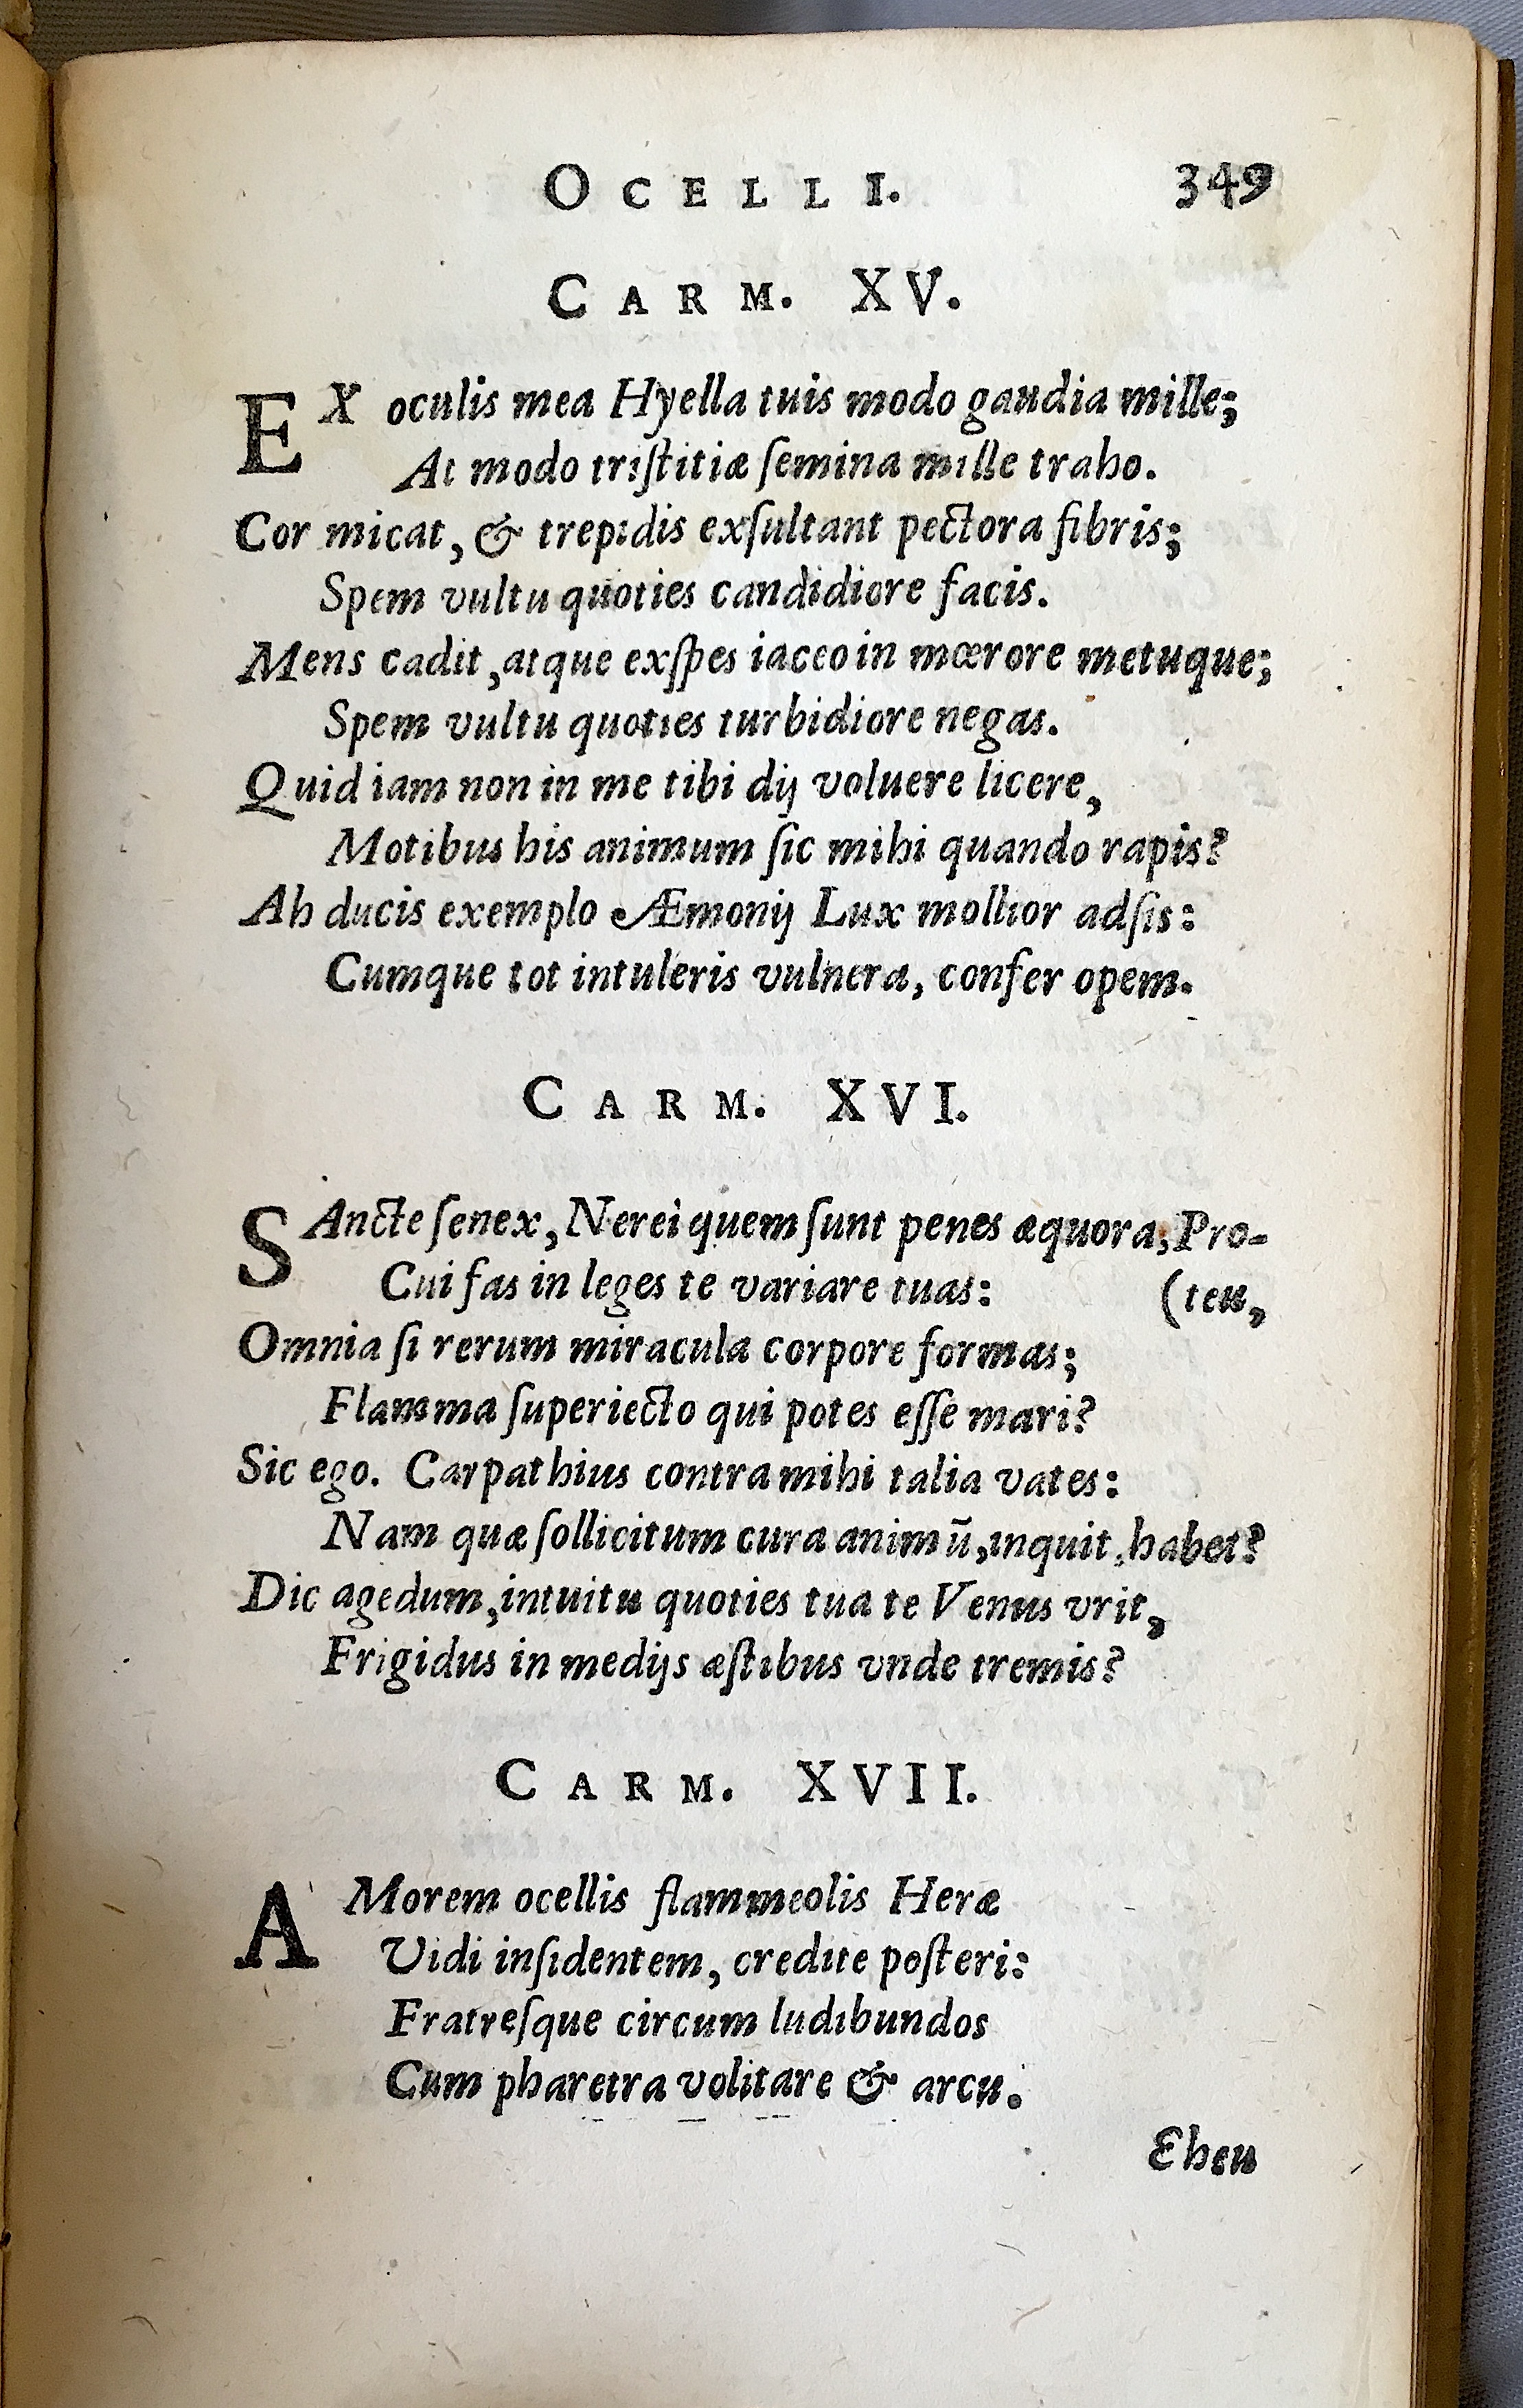 OCELLI. 349
CARM. XV.
EX oculis mea Hyella tuis modo gaudia mille;
At modo triſtitiæ ſemina mille traho.
Cor micat, & trepidis exſultant pectora fibris;
Spem vultu quoties candidiore facis.
Mens cadit, atque exſpes iaceo in mœrore metuque;
Spem vultu quoties turbidiore negas.
Quid iam non in me tibi dij voluere licere,
Motibus his animum ſic mihi quando rapis?
Ah ducis exemplo Æmonij Lux mollior adſis:
Cumque tot intuleris vulnera, confer opem.
CARM. XVI.
SAncte ſenex, Nerei quem ſunt penes æquora, Pro-
Cui fas in leges te variare tuas: (teu,
Omnia ſi rerum miracula corpore formas;
Flamma ſuperiecto qui potes eſſe mari?
Sic ego. Carpathius contra mihi talia vates:
Nam quæ ſollicitum cura animū, inquit, habet?
Dic agedum, intuitu quoties tua te Venus vrit,
Frigidus in medijs æſtibus vnde tremis?
CARM. XVII.
AMorem ocellis flammeolis Heræ
Vidi inſidentem, credite poſteri:
Fratreſque circum ludibundos
Cum pharetra volitare & arcu.
Eheu